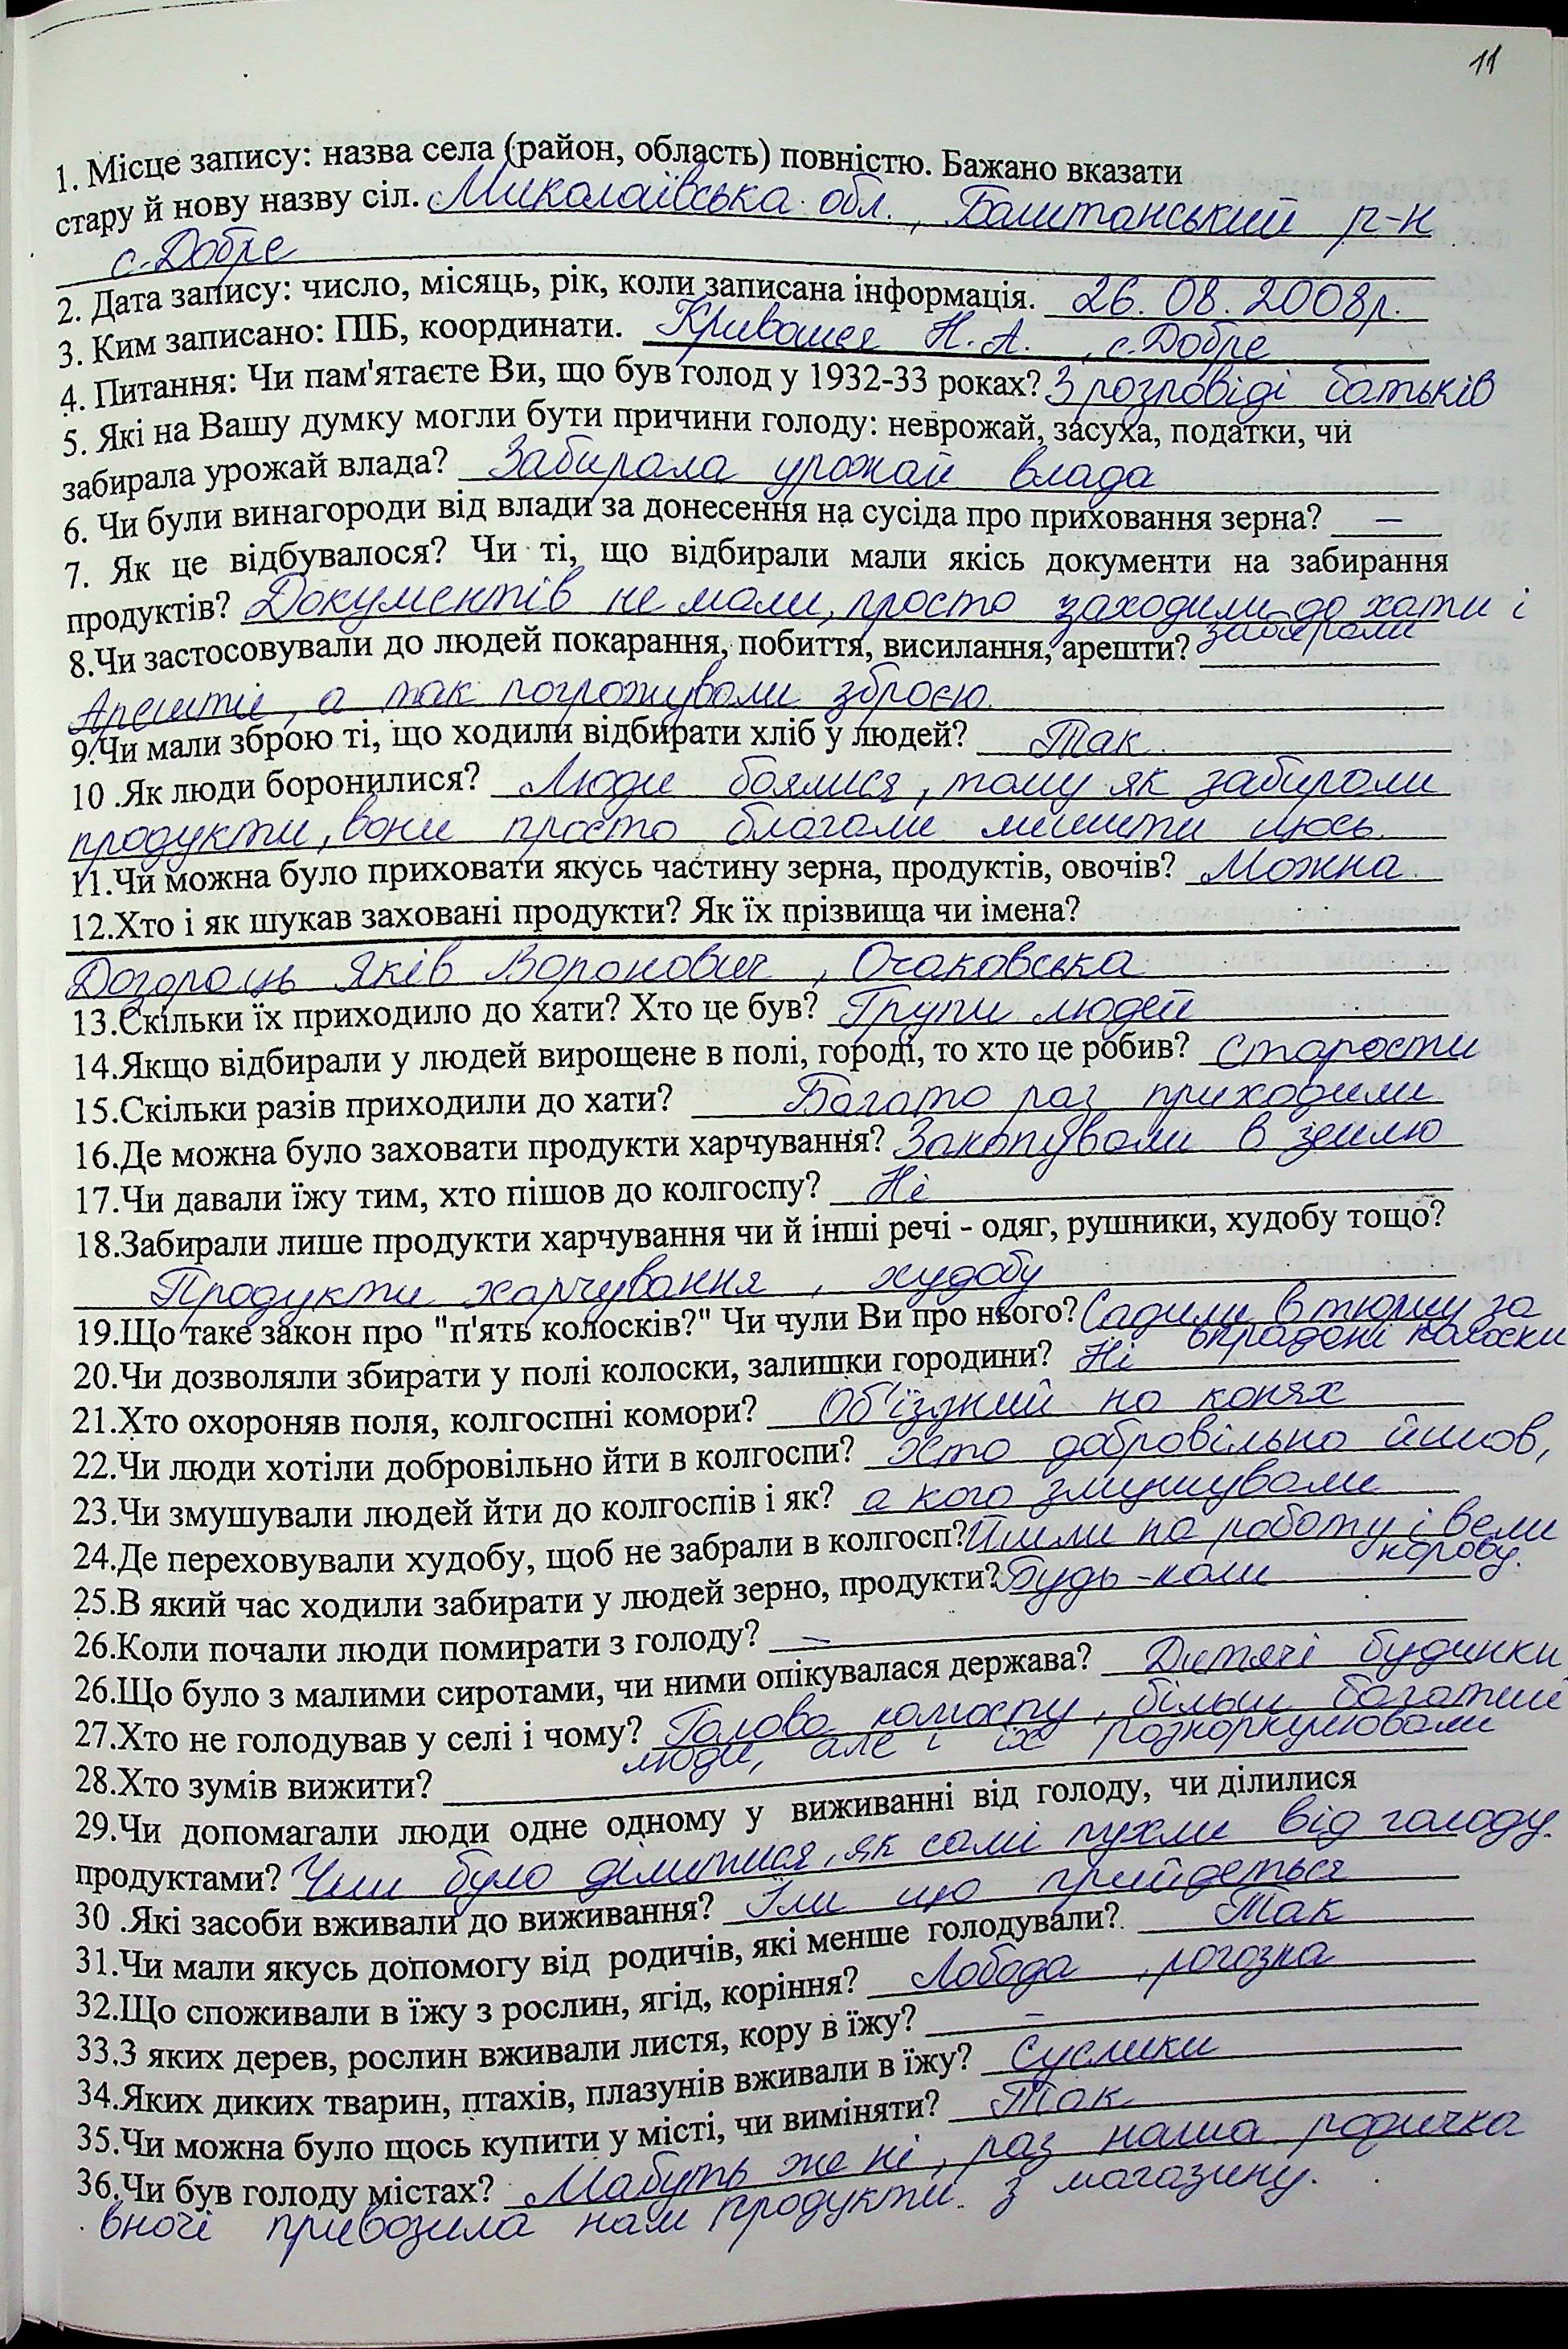 11
1. Місце запису: назва села (район, область) повністю. Бажано вказати
стару й нову назву сіл. Миколаївська обл., Баштанський р-н
с. Добре
2. Дата запису: число, місяць, рік, коли записана інформація. 26.08.2008р.
3. Ким записано: ПІБ, координати. Кривошея Н.А., с. Добре
4. Питання: Чи пам'ятаєте Ви, що був голод у 1932-33 роках? З розповіді батьків
5. Які на Вашу думку могли бути причини голоду: неврожай, засуха, податки, чи
забирала урожай влада? Забирала урожай влада
6. Чи були винагороди від влади за донесення на сусіда про приховання зерна? —
7. Як це відбувалося? Чи ті, що відбирали мали якісь документи на забирання
продуктів? Документів не мали, просто заходили до хати і
забирали
8.Чи застосовували до людей покарання, побиття, висилання, арешти?
Арешти, а так погрожували зброєю.
9.Чи мали зброю ті, що ходили відбирати хліб у людей? Так.
10 .Як люди боронилися? Люди боялися, тому як забирали
продукти, вони просто благали лишити щось.
11.Чи можна було приховати якусь частину зерна, продуктів, овочів? Можна.
12.Хто і як шукав заховані продукти? Як їх прізвища чи імена?
Яків, Очаковська
13.Скільки їх приходило до хати? Хто це був? Групи людей
14.Якщо відбирали у людей вирощене в полі, городі, то хто це робив? Старости
15.Скільки разів приходили до хати? Багато раз приходили
16.Де можна було заховати продукти харчування? Закопували в землю
17.Чи давали їжу тим, хто пішов до колгоспу? Ні
18.Забирали лише продукти харчування чи й інші речі - одяг, рушники, худобу тощо?
Продукти харчування, худобу
19.Що таке закон про "п'ять колосків?" Чи чули Ви про нього? Садили в тюрму за
вкрадені колоски
20.Чи дозволяли збирати у полі колоски, залишки городини? Ні
21.Хто охороняв поля, колгоспні комори? Об'їзний на конях
22.Чи люди хотіли добровільно йти в колгоспи? Хто добровільно йшов,
23.Чи змушували людей йти до колгоспів і як? а кого змушували
24.Де переховували худобу, щоб не забрали в колгосп? Йшли на роботу і вели
корову.
25.В який час ходили забирати у людей зерно, продукти? Будь-коли
26.Коли почали люди помирати з голоду? —
26.Що було з малими сиротами, чи ними опікувалася держава? Дитячі будинки
27.Хто не голодував у селі і чому? Голова колгоспу, більш багатші
люди, але і їх розкуркулювали
28.Хто зумів вижити?
29.Чи допомагали люди одне одному у виживанні від голоду, чи ділилися
продуктами? Чим було ділитися, як самі пухли від голоду.
30 .Які засоби вживали до виживання? Їли що прийдеться
31.Чи мали якусь допомогу від родичів, які менше голодували? Так
32.Що споживали в їжу з рослин, ягід, коріння? Лобода, рогозка
33.З яких дерев, рослин вживали листя, кору в їжу? —
34.Яких диких тварин, птахів, плазунів вживали в їжу? Суслики
35.Чи можна було щось купити у місті, чи виміняти? Так
36.Чи був голоду містах? Мабуть же ні, раз наша родичка
вночі привозила нам продукти з магазину.